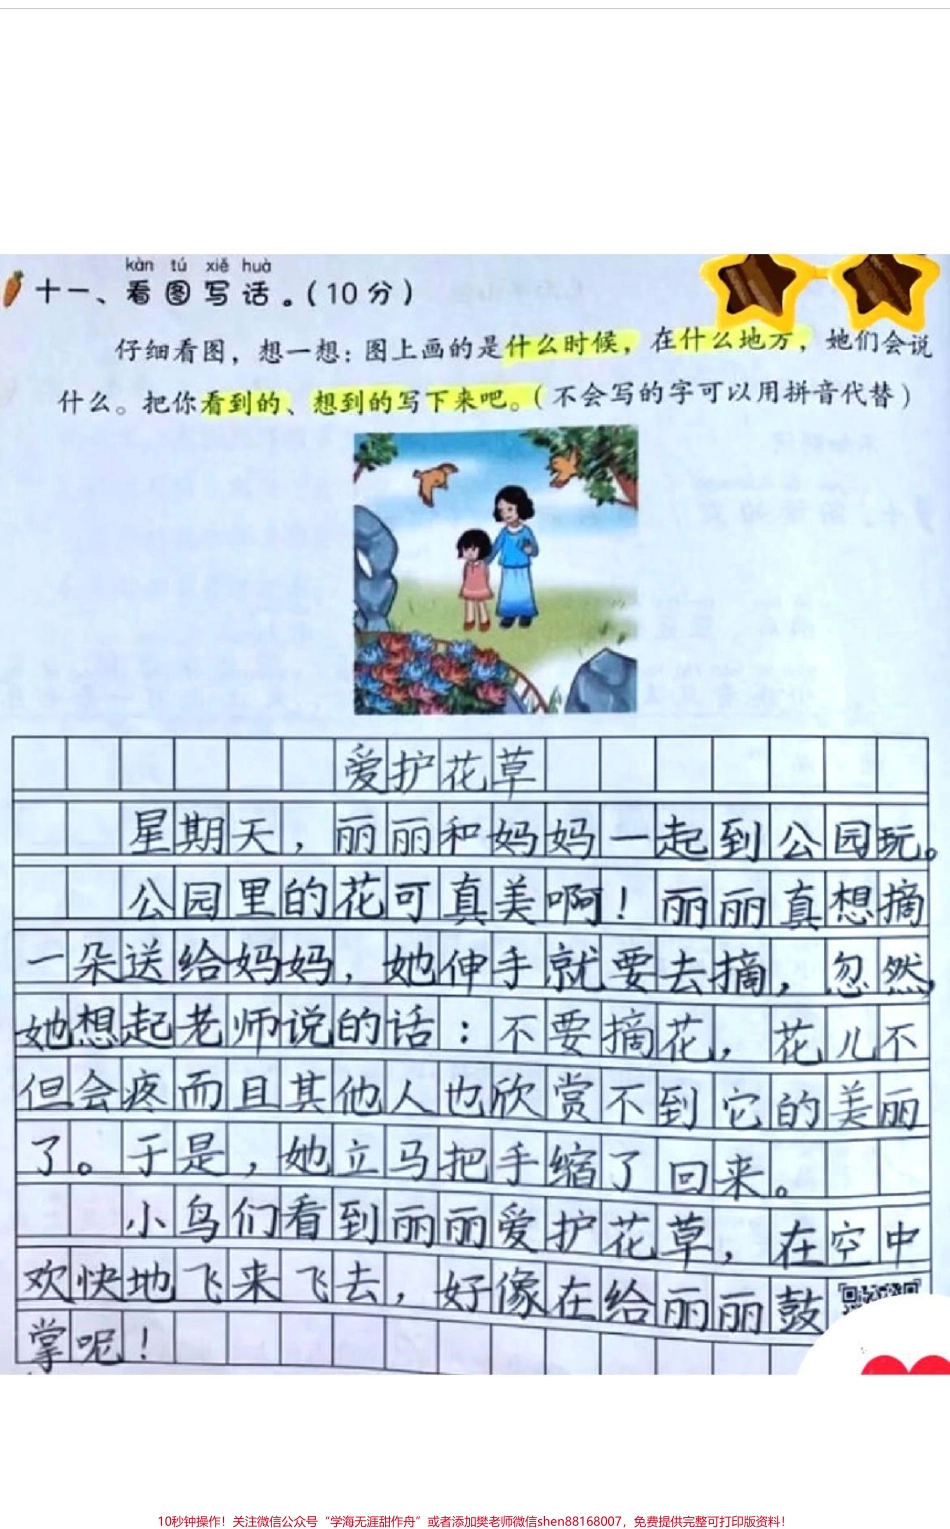 kàn tú xiě huà
十一、看图写话。(10分)
仔细看图，想一想：图上画的是什么时候，在什么地方，她们会说
什么。把你看到的、想到的写下来吧。(不会写的字可以用拼音代替)
爱护花草
星期天，丽丽和妈妈一起到公园玩。
公园里的花可真美啊！丽丽真想摘
一朵送给妈妈，她伸手就要去摘，忽然，
她想起老师说的话：不要摘花，花儿不
但会疼而且其他人也欣赏不到它的美丽
了。于是，她立马把手缩了回来。
小鸟们看到丽丽爱护花草，在空中
欢快地飞来飞去，好像在给丽丽鼓
掌呢！
10秒钟操作！关注微信公众号“学海无涯甜作舟”或者添加樊老师微信shen88168007，免费提供完整可打印版资料！